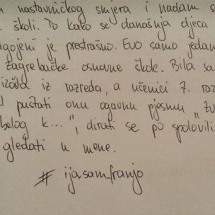 nastavničkog smjera i nadam s
školi. To kako se današnja djeca
gojeni je prestrašno. Evo samo jedan
zagrebačke osnovne škole. Bila sa
izašla iz razreda, a učenici 7. raz
puštati onu ogavnu pjesmu, "Tu
belog k...", dirati se po spolovili
gledati u mene.
# ijasamfranjo